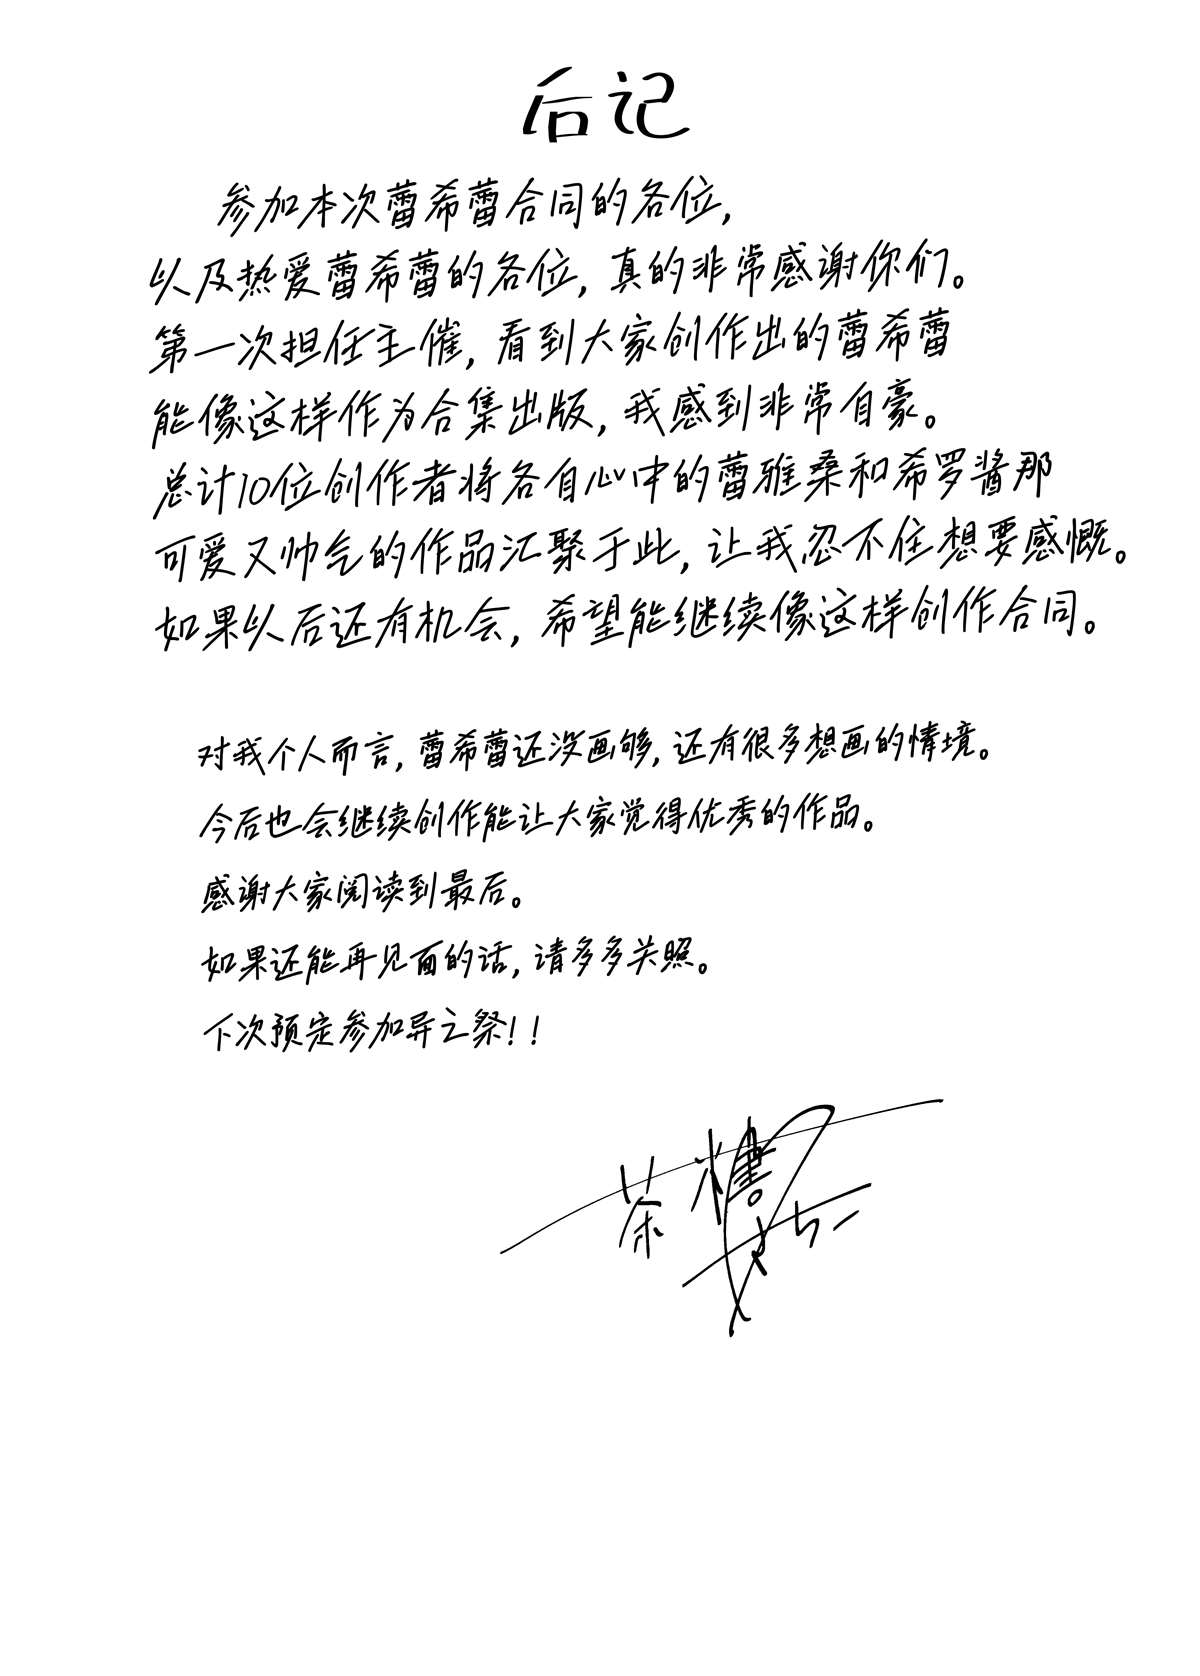 后记
参加本次蕾希蕾合同的各位,
以及热爱蕾希蕾的各位,真的非常感谢你们。
第一次担任主催,看到大家创作出的蕾希蕾
能像这样作为合集出版,我感到非常自豪。
总计10位创作者将各自心中的蕾雅桑和希罗酱那
可爱又帅气的作品汇聚于此,让我忍不住想要感慨。
如果以后还有机会,希望能继续像这样创作合同。
对我个人而言,蕾希蕾还没画够,还有很多想画的情境。
今后也会继续创作能让大家觉得优秀的作品。
感谢大家阅读到最后。
如果还能再见面的话,请多多关照。
下次预定参加异之祭!!